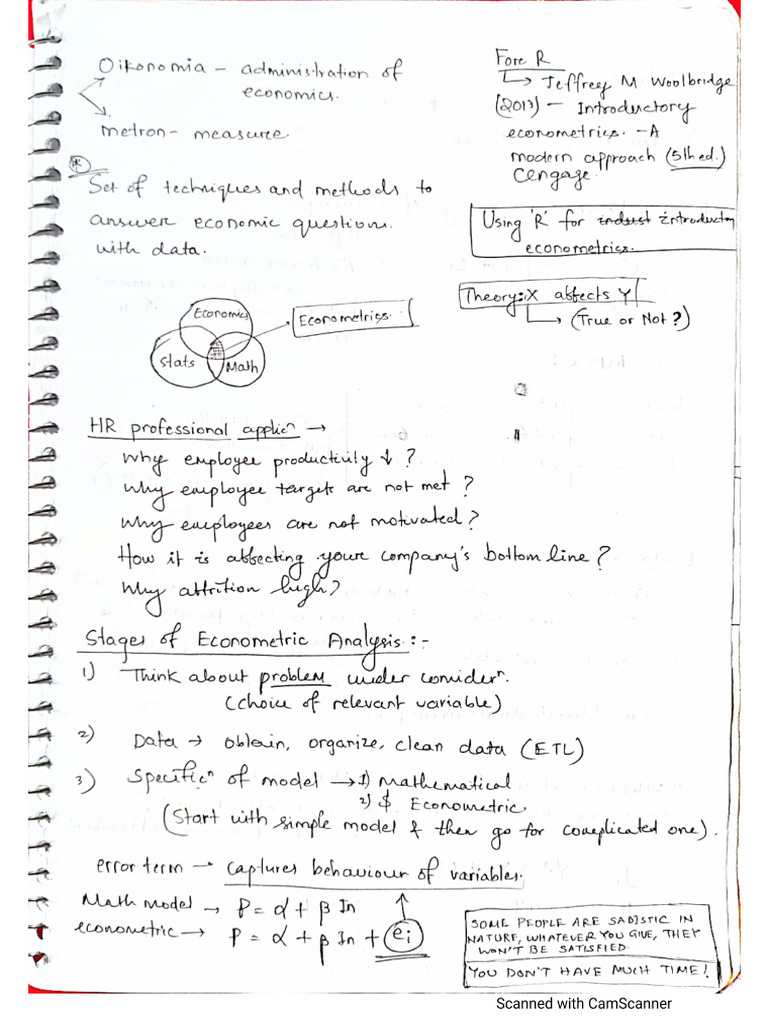 Oikonomia - administration of
economics.
metron - measure.
Fore R
Jeffrey M Woolbridge
(2013) - Introductory
econometrics. - A
modern approach (5th ed.)
Cengage.
Set of techniques and methods to
answer economic question.
with data.
Using 'R' for introductory
econometrics.
Theory: X affects Y
(True or Not?)
Economics
Stats
Math
Econometrics.
HR professional applicn →
Why employee productivity ↓ ?
Why employee targets are not met ?
Why employees are not motivated?
How it is affecting your company's bottom line?
Why attrition high?
Stages of Econometric Analysis :-
1) Think about problem under considern.
(choice of relevant variable)
2) Data → obtain, organize, clean data (ETL)
3) Specificn of model → 1) Mathematical
2) Econometric
(Start with simple model & then go for complicated one).
error term → captures behaviour of variables.
Math model → P = α + β In
econometric → P = α + β In + ei
SOME PEOPLE ARE SADISTIC IN
NATURE, WHATEVER YOU GIVE, THEY
WON'T BE SATISFIED.
YOU DON'T HAVE MUCH TIME!
Scanned with CamScanner